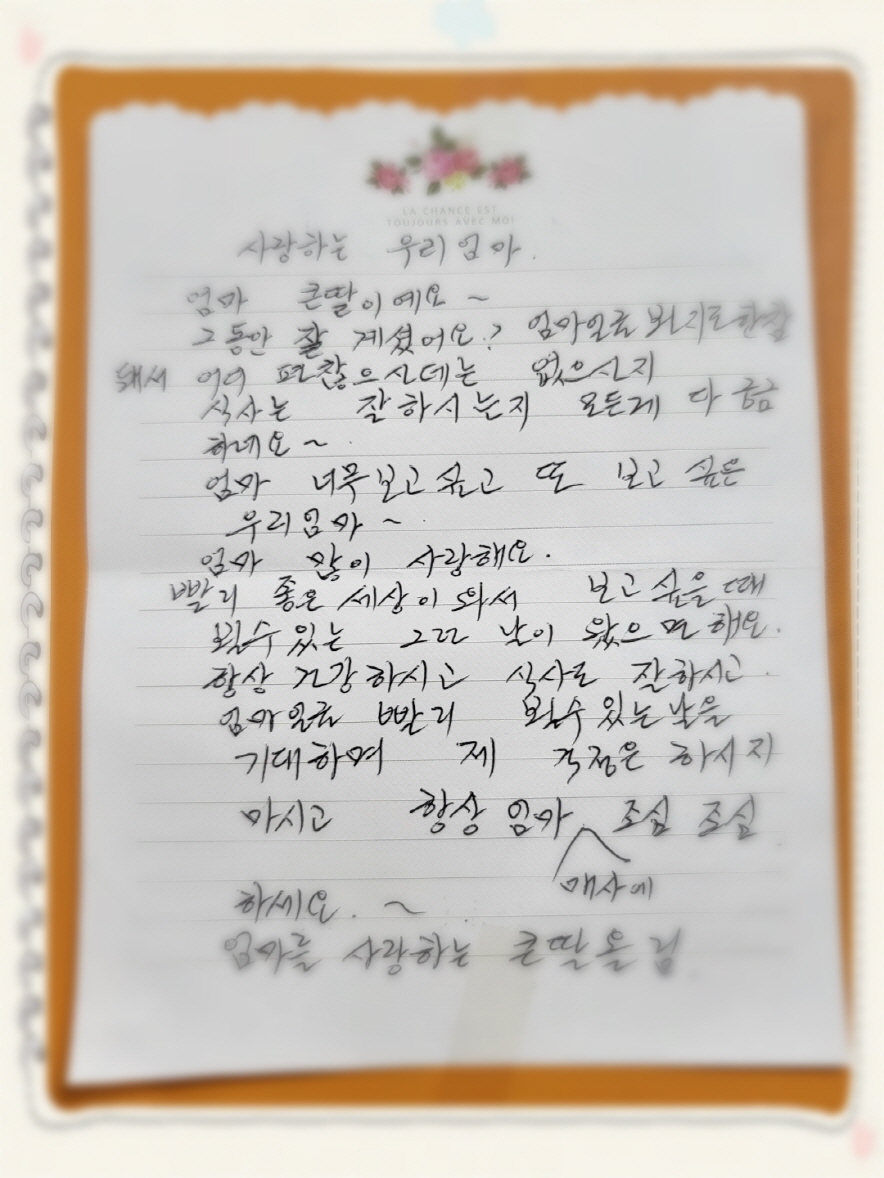 LA CHANCE EST
TOUJOURS AVEC MOI
사랑하는 우리 엄마.
엄마 큰딸이예요 ~
그동안 잘 계셨어요? 엄마얼굴 뵌지도한참
돼서 어디 편찮으신데는 없으신지
식사는 잘하시는지 모든게 다 궁금
하네요 ~
엄마 너무보고싶고 또 보고 싶은
우리엄마 ~
엄마 많이 사랑해요.
빨리 좋은 세상이 와서 보고 싶을 때
뵐수있는 그런 날이 왔으면 해요.
항상 건강하시고 식사도 잘하시고
엄마얼굴 빨리 뵐수있는날을
기대하며 제 걱정은 하시지
마시고 항상 엄마 조심 조심
매사에
하세요. ~
엄마를 사랑하는 큰딸올림